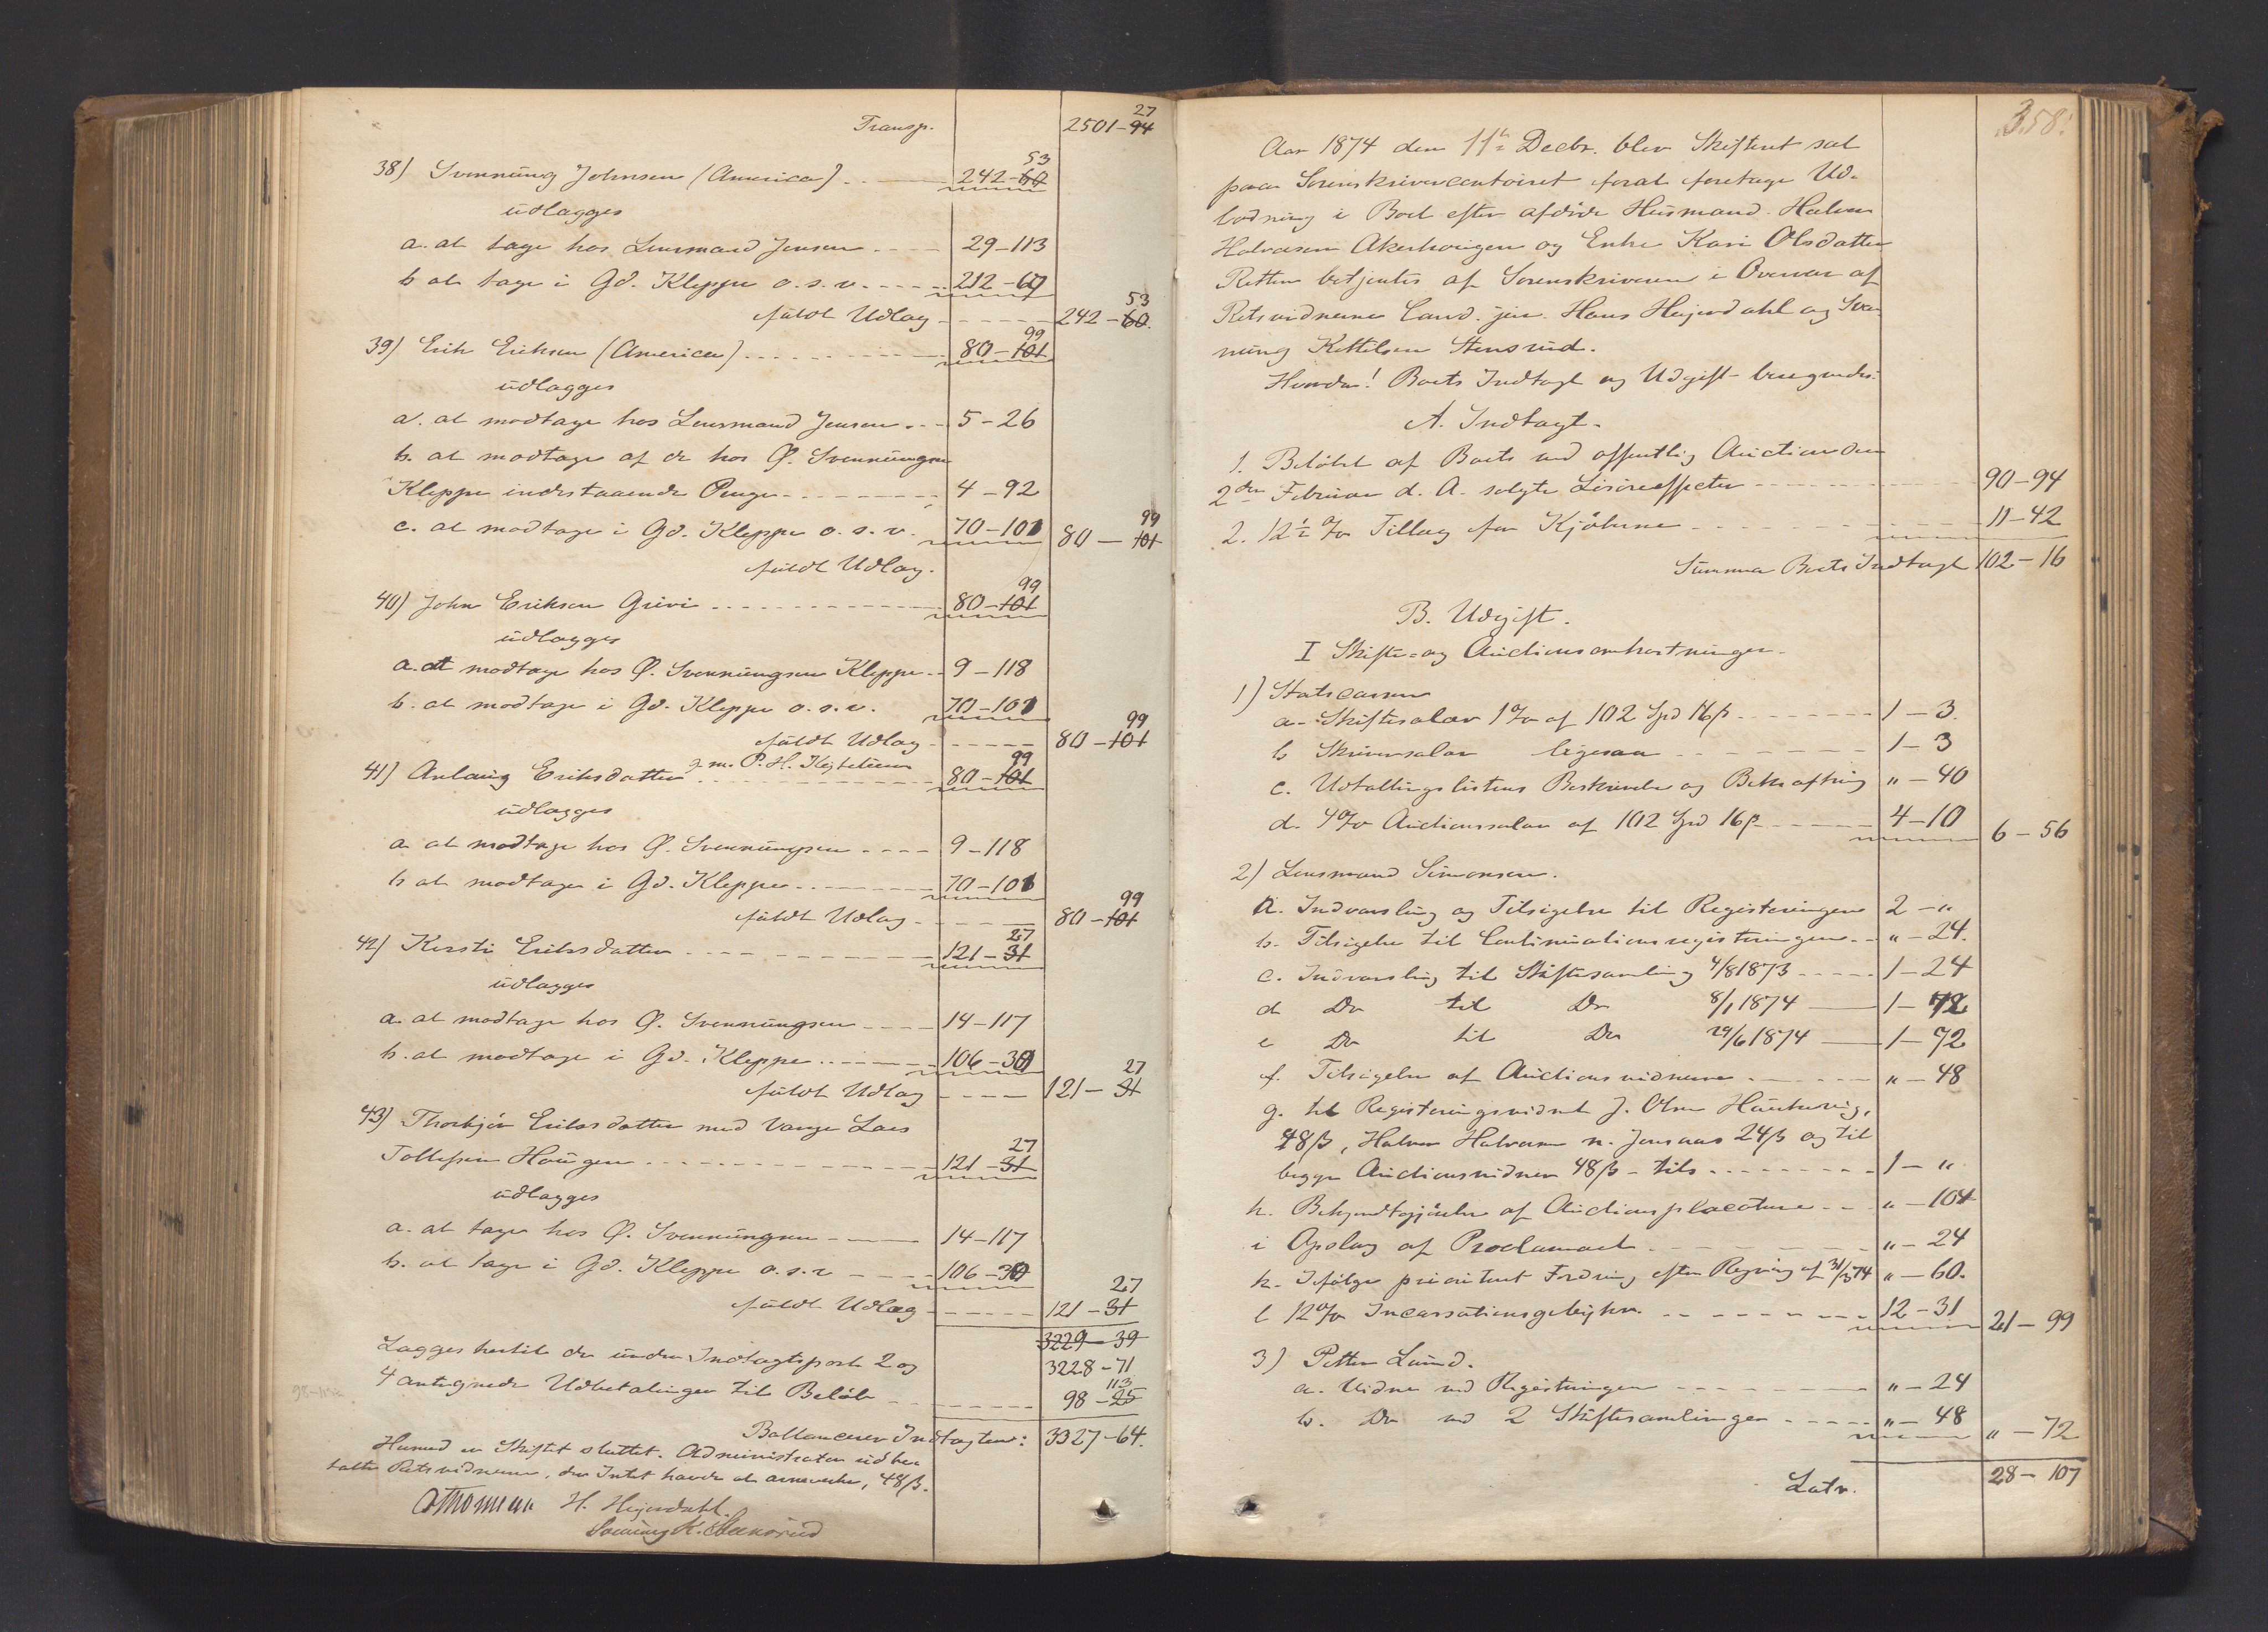 Transp. 2501-94 27
38) Svennung Johnsen (America) 242-60 53
udlægges
a. at tage hos Lensmand Jensen 29-113
b at tage i Gd. Kleppe o.s.v. 212-67
fuldt Udlæg 242-60. 53
39) Erik Eriksen (America) 80-101 99
udlægges
a. at modtage hos Lensmand Jensen 5-26
b. at modtage af de hos Ø. Svennungsen
Kleppe indestaaende Penge 4-92
c. at modtage i Gd. Kleppe o.s.v. 70-101 80-101 99
fuldt Udlæg.
40) John Eriksen Grivi 80-101 99
udlægges
a. at modtage hos Ø. Svennungsen Kleppe 9-118
b. at modtage i Gd. Kleppe o.s.v. 70-101
fuldt Udlæg 80-101 99
41) Anlaug Eriksdatter g.m. P.H. 80-101 99
udlægges
a at modtage hos Ø. Svennungsen 9-118
b at modtage i Gd. Kleppe 70-101
fuldt Udlæg 80-101 99
42) Kersti Eriksdatter 121-31 27
udlægges
a. at modtage hos Ø. Svennungsen 14-117
b. at modtage i Gd. Kleppe 106-30
fuldt Udlæg 121-31 27
43) Thorbjør Eriksdatter med Værge Lars
Tollefsen Haugen 121-31 27
udlægges
a. at tage hos Ø. Svennungsen 14-117
b. at tage i Gd. Kleppe o.s.v 106-30
fuldt Udlæg 121-31 27
3229-39
Lægges hertil de under Indtægtspost 2 og 3228-71
4 antegnede Udbetalinger til Beløb 98-25 113
Ballancerer Indtægten: 3327-64.
Hermed er Skiftet sluttet. Administrator udbe-
talte Retsvidnerne, der Intet havde at anmerke, 48ß.
H. Hejerdahl.
Svennung K. Stensrud
358.
Aar 1874 den 11te Decbr. blev Skifteret sat
paa Sorenskrivercontoiret forat foretage Ud-
lodning i Boet efter afdøde Husmand Halvor
Halvorsen Akerhougen og Enke Kari Olsdatter
Retten betjentes af Sorenskriveren i Overvær af
Retsvidnerne Cand. jur. Hans Hejerdahl og Sven-
nung Kittilsen Stensrud.
Hvorda! Boets Indtægt og Udgift beregnedes:
A. Indtægt.
1. Beløbet af Boets ved offentlig Auction den
2den Februar d. A. solgte Løsøreeffecter 90-94
2. 12½ % Tillæg for Kjøberne 11-42
Summa Boets Indtægt 102-16
B. Udgift.
I Skifte- og Auctionsomkostninger.
1) Statscassen
a. Skiftesalær 1% af 102 Spd 16ß 1-3.
b Skriversalær ligesaa 1-3
c. Udtallingslistens Beskrivelse og Bekræftning " - 40
d. 4% Auctionssalær af 102 Spd 16ß 4-10 6-56
2) Lensmand Simonsen.
a. Indvarsling og Tilsigelse til Registreringen 2-"
b. Tilsigelse til Continuationsregistreringen " - 24.
c. Indvarsling til Skiftesamling 4/8 1873 1-24
d Do til Do 8/1 1874 1-72
e Do til Do 29/6 1874 1-72
f. Tilsigelse af Auctionsvidnerne " - 48
g. til Registreringsvidnet J. Olsen
48ß, Halvor Halvorsen n. Jonsaas 24ß og til
begge Auctionsvidner 48ß - tils. 1-"
h. Bekjendtgjørelse af Auctionsplacatene " - 104
i Opslag af Proclamaet " - 24
k. Ifølge prioriteret Fordring efter Regning af 31/3 74 " - 60.
l 12% Incassationsgebyhr. 12-31 21-99
3) Petter Lund.
a. Vidne ved Registreringen " - 24
b. Do ved 2 Skiftesamlinger " - 48 " - 72
Latr. 28-107